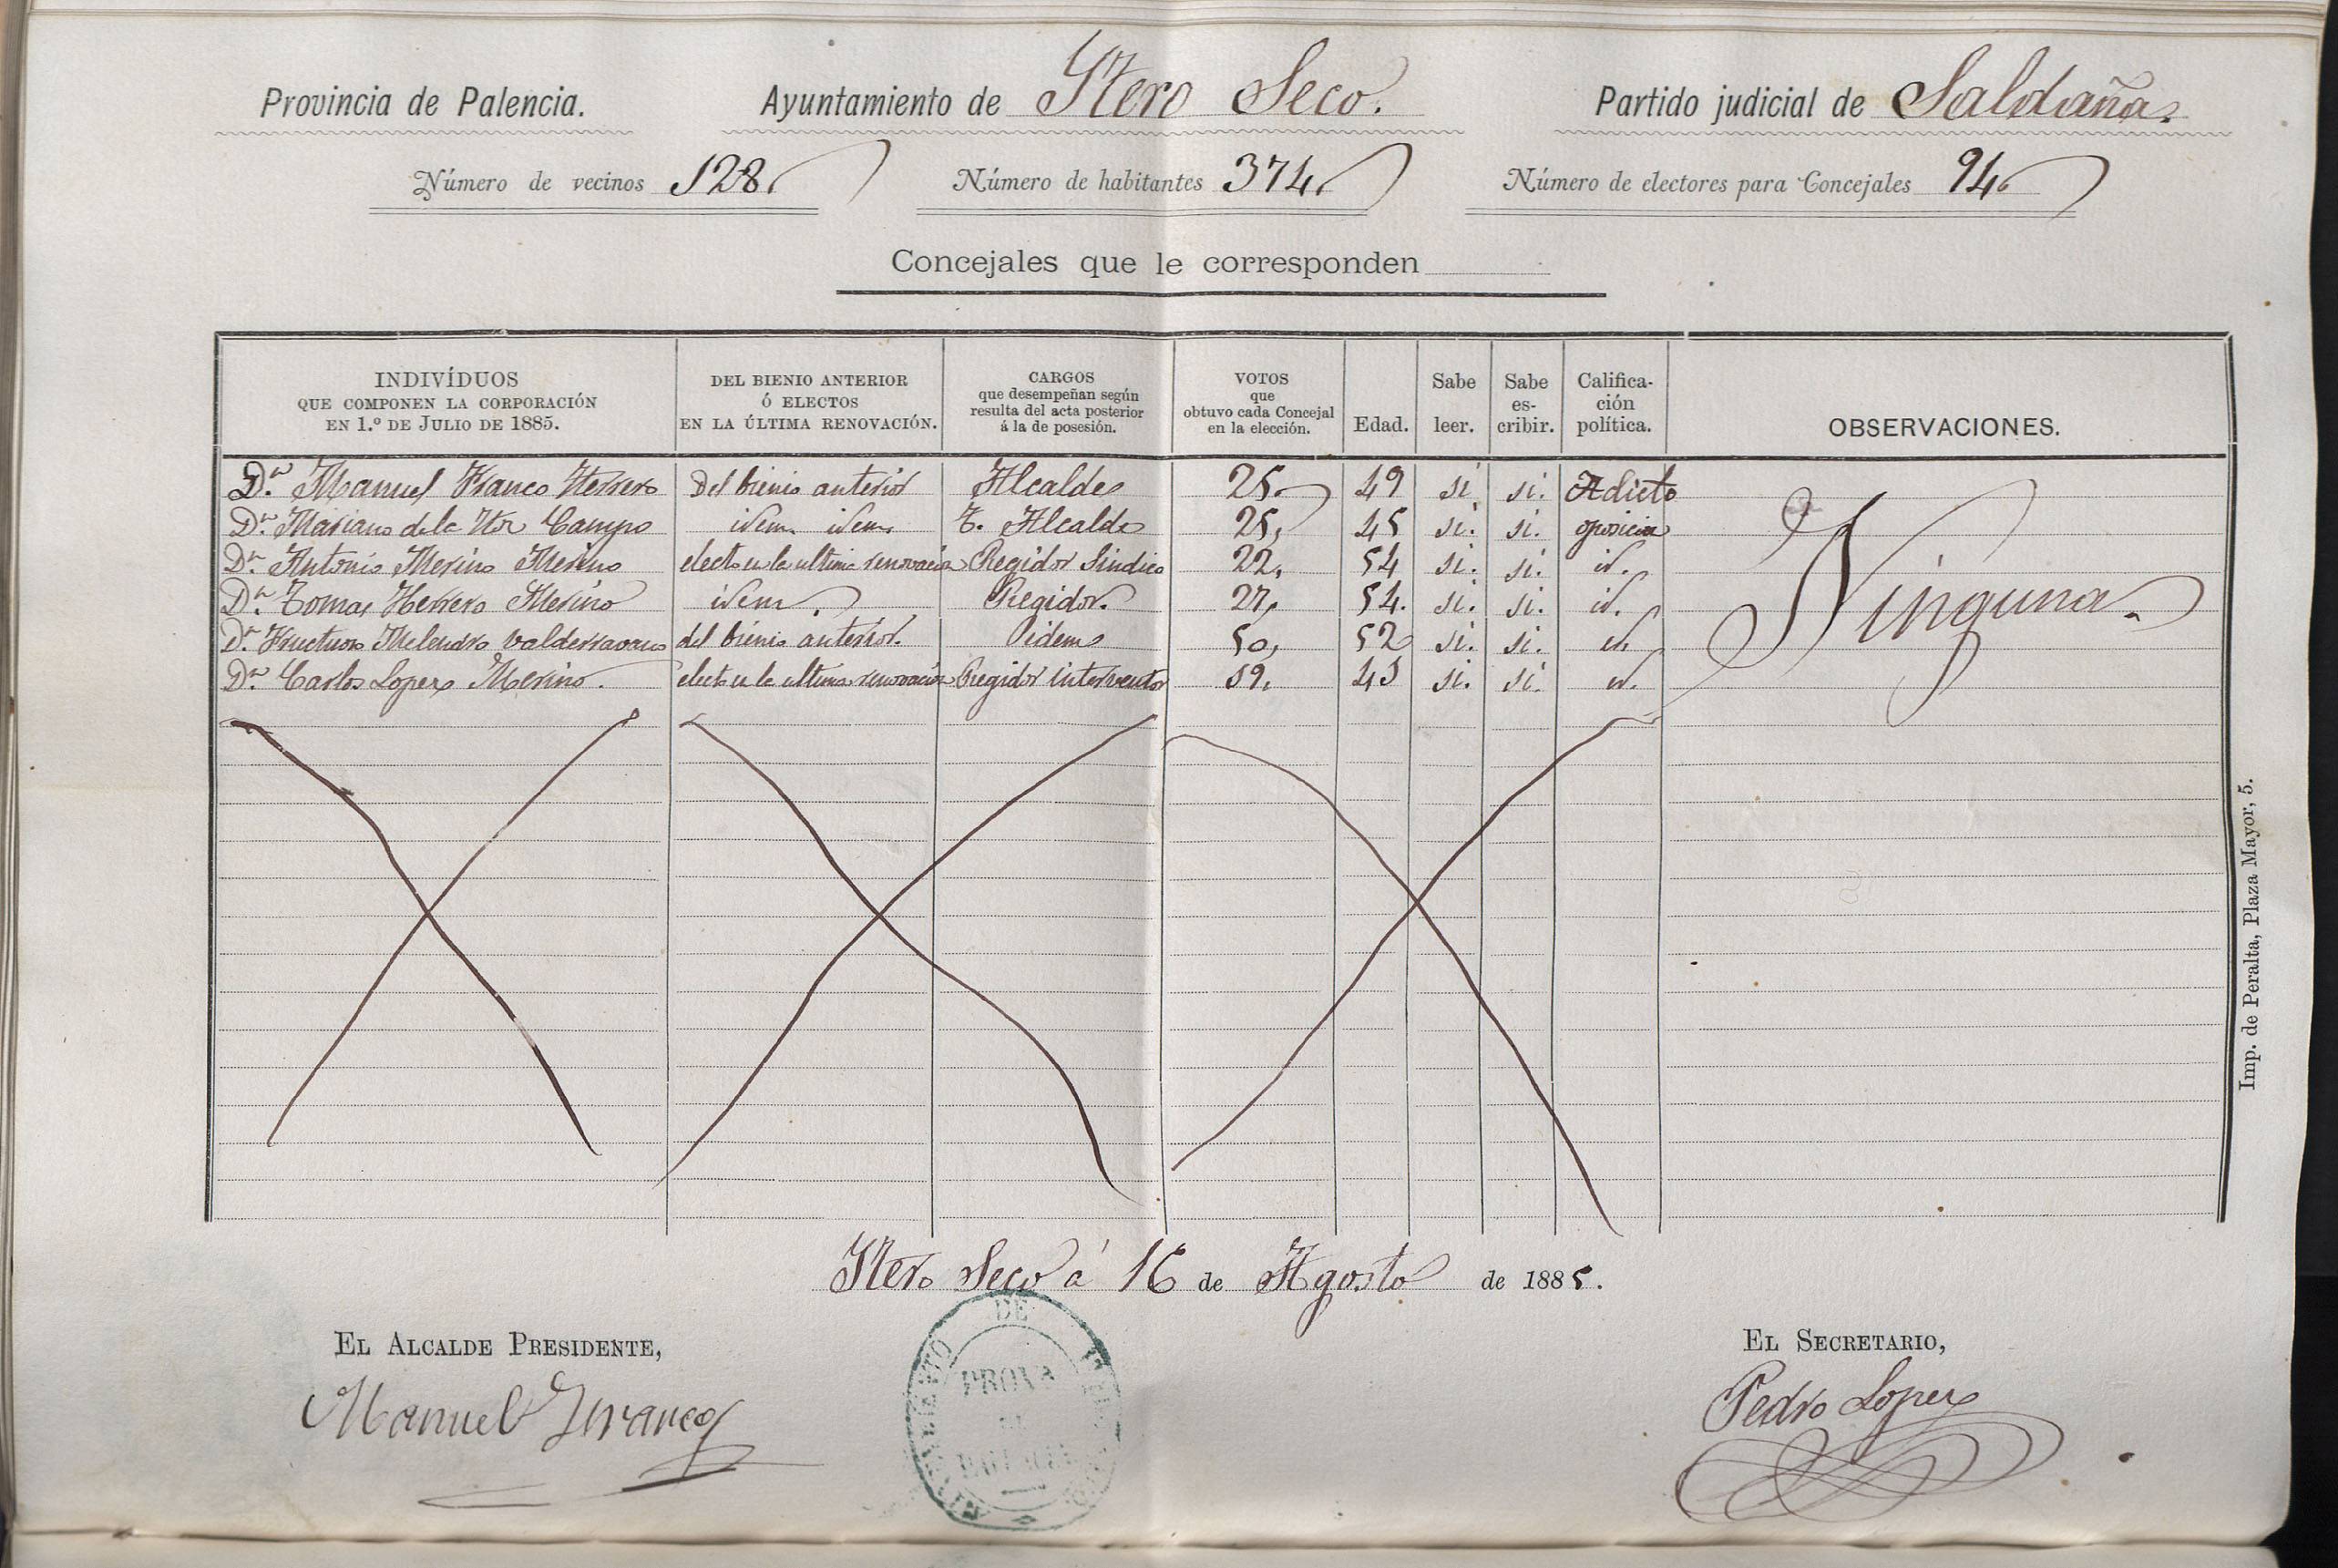 Provincia de Palencia. Ayuntamiento de Ytero Seco. Partido judicial de Saldaña.
Número de vecinos 128, Número de habitantes 374, Número de electores para Concejales 94,
Concejales que le corresponden
INDIVÍDUOS QUE COMPONEN LA CORPORACIÓN EN 1.º DE JULIO DE 1885.
DEL BIENIO ANTERIOR Ó ELECTOS EN LA ÚLTIMA RENOVACIÓN.
CARGOS que desempeñan según resulta del acta posterior á la de posesión.
VOTOS que obtuvo cada Concejal en la elección.
Edad.
Sabe leer.
Sabe es-cribir.
Califica-ción política.
OBSERVACIONES.
Dn. Manuel Franco Herrero Del bienio anterior Alcalde 25. 49 si si. Adicto
Dn. Mariano de la Campo idem. idem. T. Alcalde 25, 45 si. si. oposicion
Dn. Antonio Merino Merino electo en la ultima renovacion Regidor Sindico 22, 54 si. si. id.
Dn. Tomas Herrero Merino idem. Regidor. 27, 54. si. si. id.
Dn. Fructuoso Melendro Valderrabano del bienio anterior. idem 50, 52 si. si. id.
Dn. Carlos Lopez Merino. electo en la ultima renovacion Regidor interventor 59, 43 si. si. id.
Ninguna.
Ytero Seco á 16 de Agosto de 1885.
EL ALCALDE PRESIDENTE, EL SECRETARIO,
Manuel Franco Pedro Lopez
DE
PROVA
Imp. de Peralta, Plaza Mayor, 5.